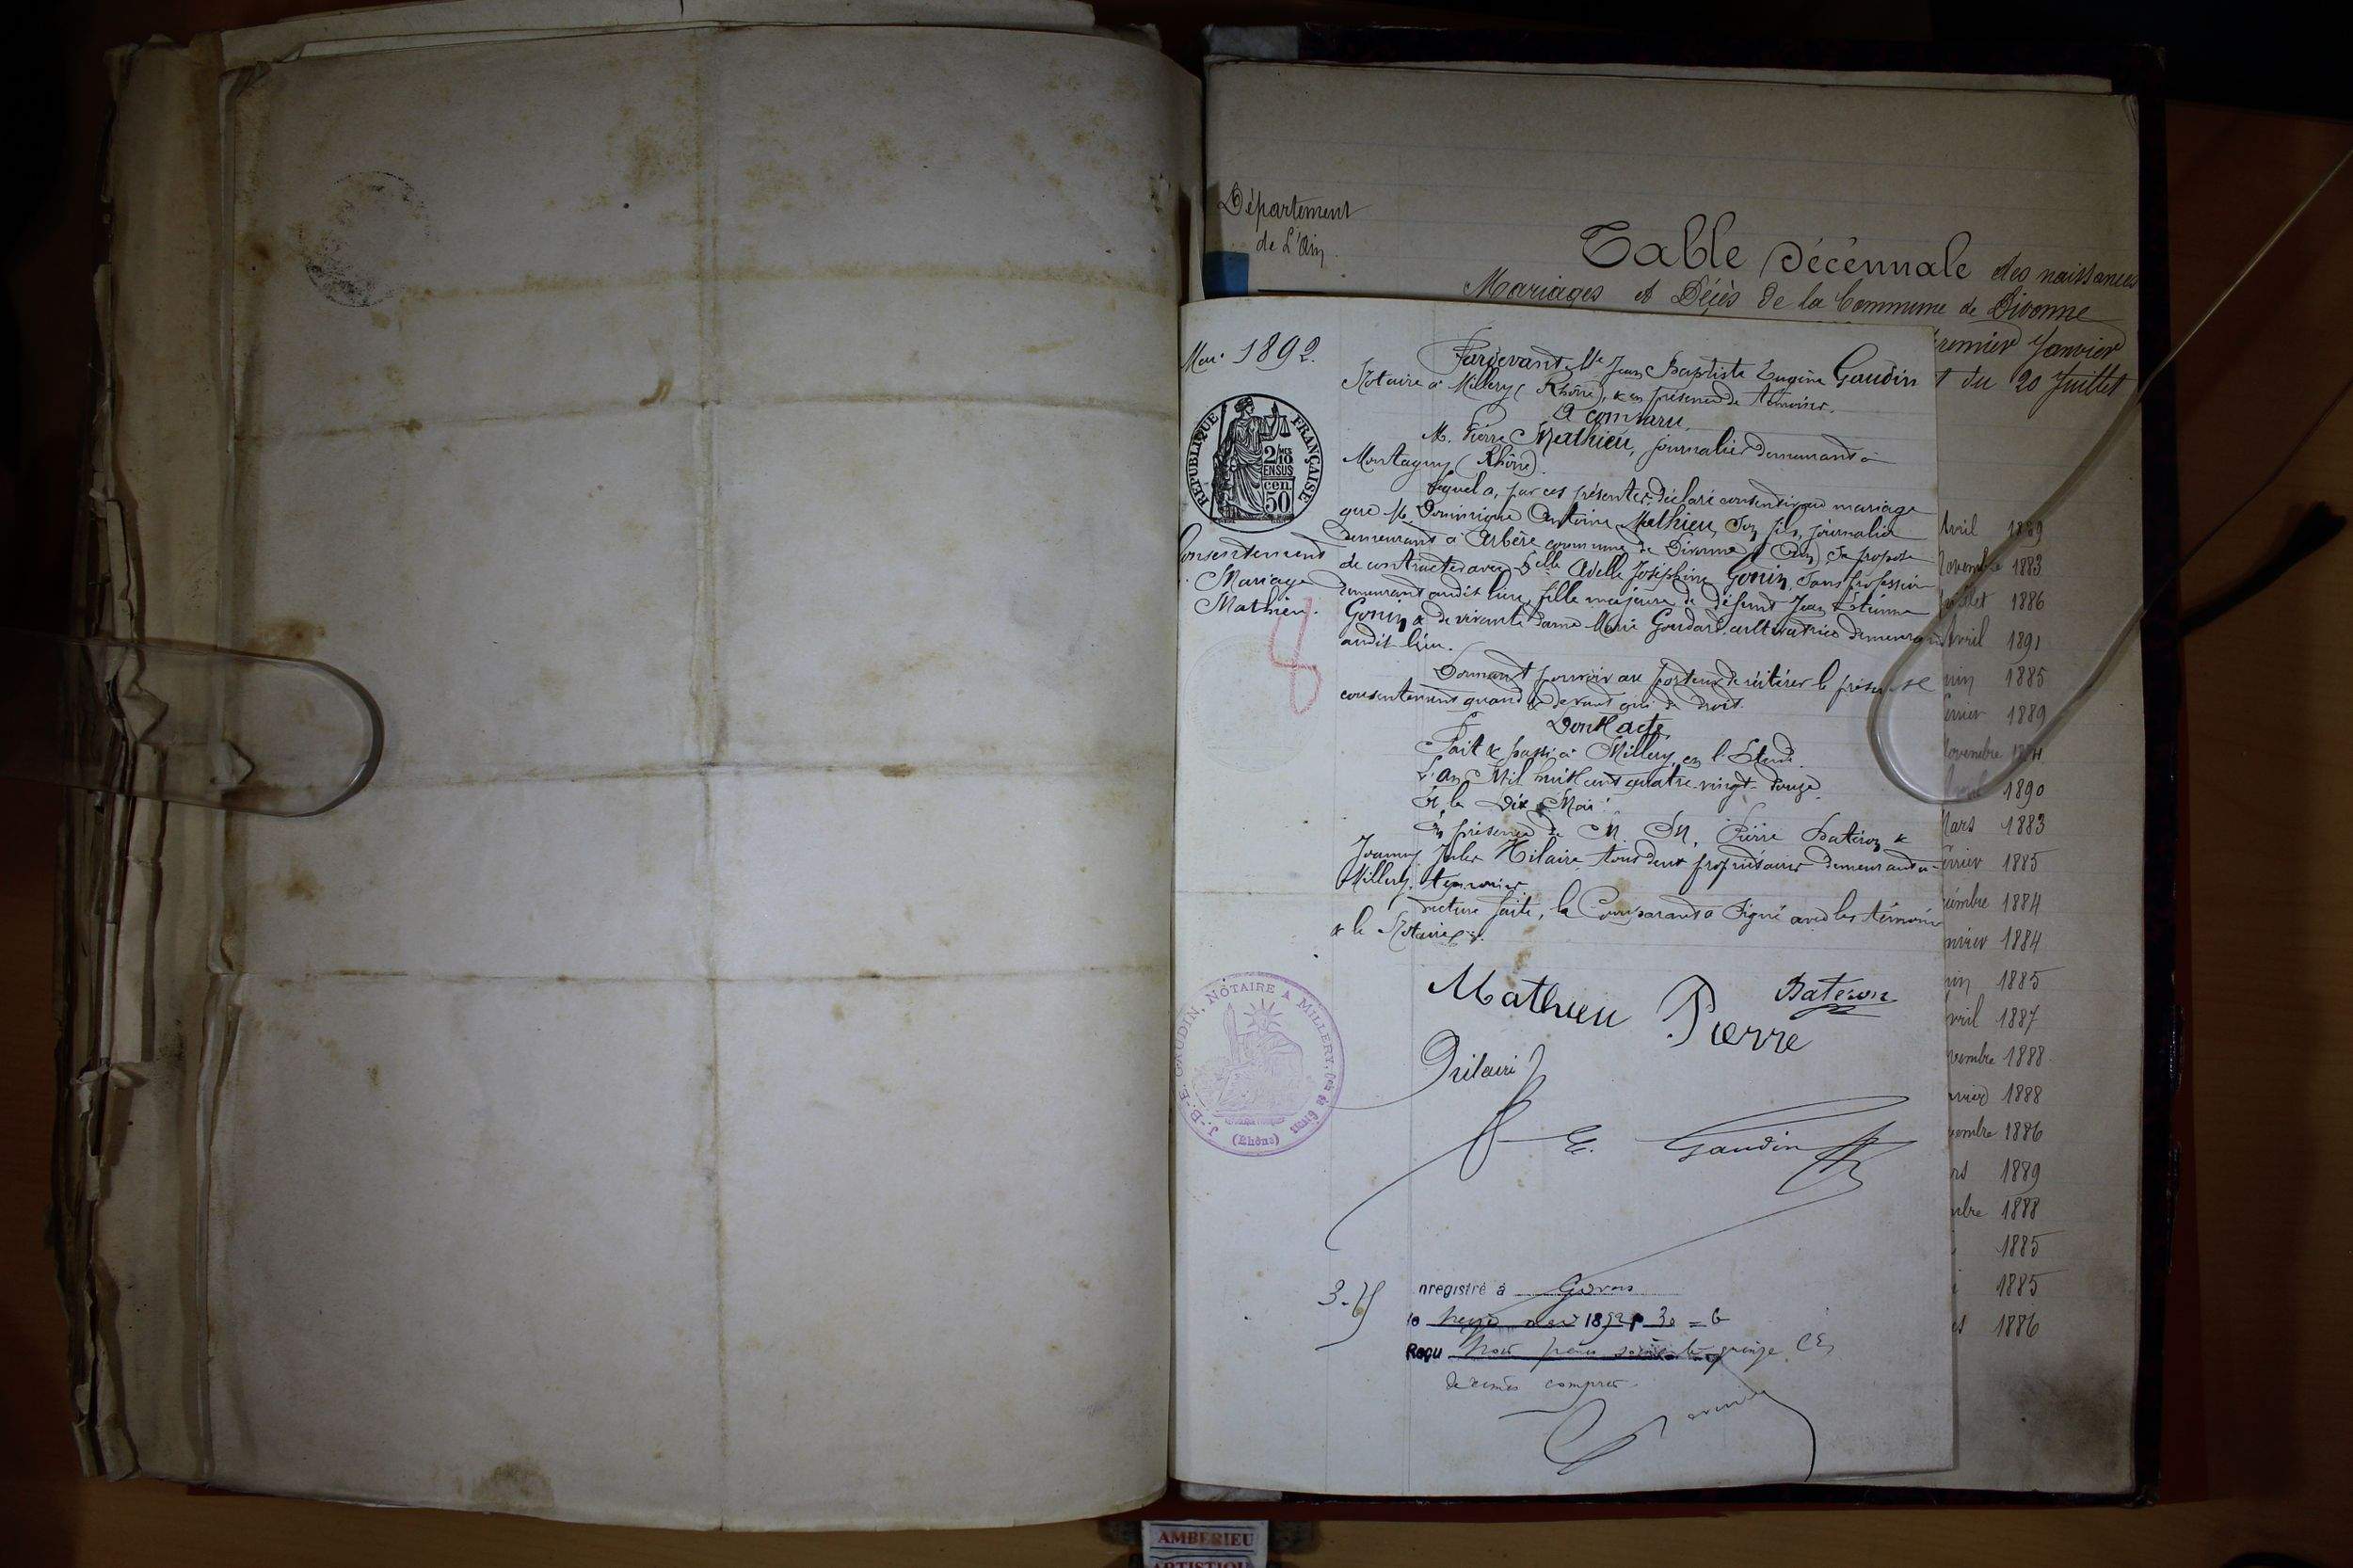 Département
de L'Ain
Table Décennale des naissances
Mariages et Décès de la Commune de Divonne
remier Janvier
du 20 Juillet
Mai 1892.
REPUBLIQUE FRANÇAISE
2/10 MES
EN SUS
cen
50
Consentement
Mariage
Mathieu.
8
Pardevant Me Jean Baptiste Eugène Gaudin
Notaire à Millery (Rhône), & en présence de témoins.
A comparu.
M. Pierre Mathieu, journalier demeurant à
Montagny (Rhône).
Lequel a, par ces présentes, déclaré consentir au mariage
que M. Dominique Antoine Mathieu, son fils, journalier
demeurant à Arbère commune de Divonne (Ain) se propose
de contracter avec Delle Adelle Joséphine Gonin, sans profession
demeurant audit lieu, fille majeure de défunt Jean Etienne
Gonin & de vivante dame Marie Goudard, cultivatrice demeurant
audit lieu.
Donnant pouvoir au porteur de réitérer le présent
consentement quand & devant qui de droit.
Dont acte
Fait & passé à Millery, en l'Etude.
L'an Mil huit cent quatre-vingt-douze
Et le Dix Mai
En présence de M. M. Pierre Bateron &
Joanny Jules Hilaire, tous deux propriétaires demeurant à
Millery, témoins
Lecture faite, le Comparant a signé avec les témoins
& le Notaire.
Mathieu Pierre
Bateron
Hilaire
E. Gaudin
J.-B.-E. GAUDIN, NOTAIRE A MILLERY, Con de Givors
(Rhône)
3.75
nregistré à Givors
le treize mai 1892 f 30 = 6
Reçu trois francs soixante quinze Ces
décimes compris
Avril 1889
Novembre 1883
Juillet 1886
Avril 1891
uin 1885
évrier 1889
Novembre 1884
1890
Mars 1883
évrier 1885
cembre 1884
nvier 1884
uin 1885
vril 1887
vembre 1888
nvier 1888
vembre 1886
rs 1889
mbre 1888
1885
1885
1886
AMBERIEU
ARTISTIQU